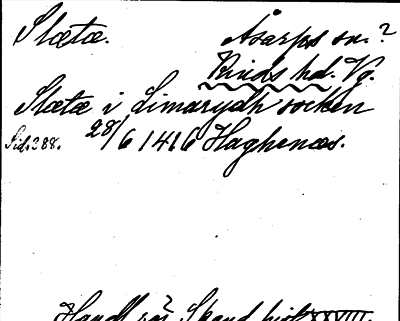 Slætæ. Åsarps sn.?
Kinds hd. Vg.
Slætæ i Limarydh socken
Sid. 288. 28/6 1416 Haghenæs.
Handl. rör. Skand. hist. XXVIII.